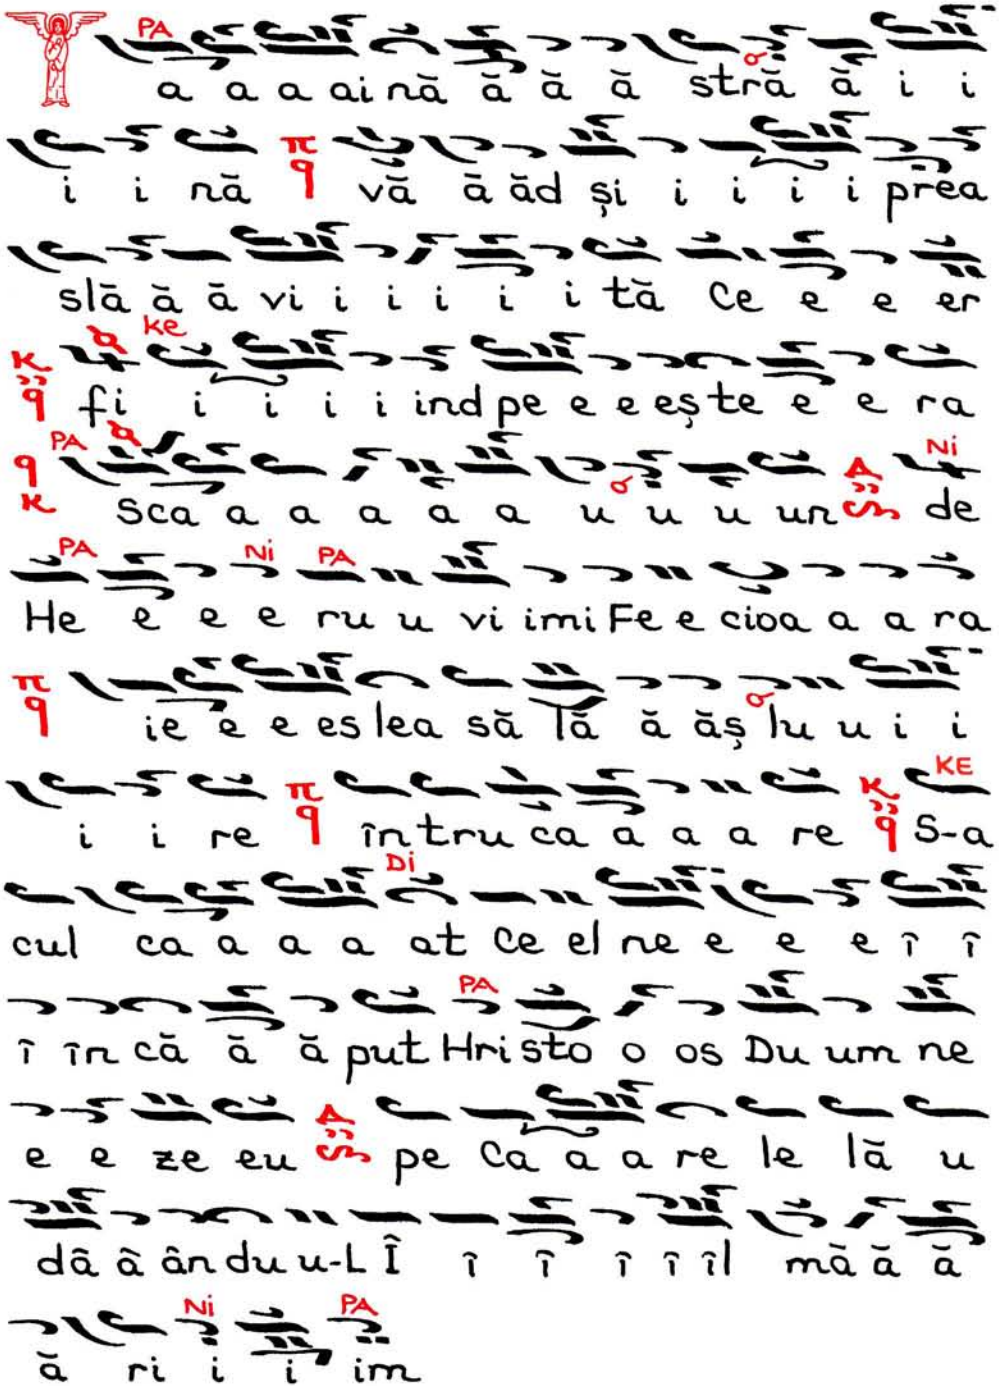 PA
T a a a ai nă ă ă ă stră ă i i
i i nă π q vă ă ăd și i i i i prea
slă ă ă vi i i i i i tă Ce e e er
ke
κ q fi i i i i ind pe e e eș te e e ra
PA
q κ Sca a a a a a u u u un de
Ni
PA Ni PA
He e e e ru u vi imi Fe e cioa a a ra
π q ie e e es lea să lă ă ăș lu u i i
i i re π q în tru ca a a a re κ q S-a
KE
Di
cul ca a a a at Ce el ne e e e î î
PA
î în că ă ă put Hri sto o os Du um ne
e e ze eu pe Ca a a re le lă u
dâ â ân du u-L Î î î î î îl mă ă ă
Ni PA
ă ri i i im